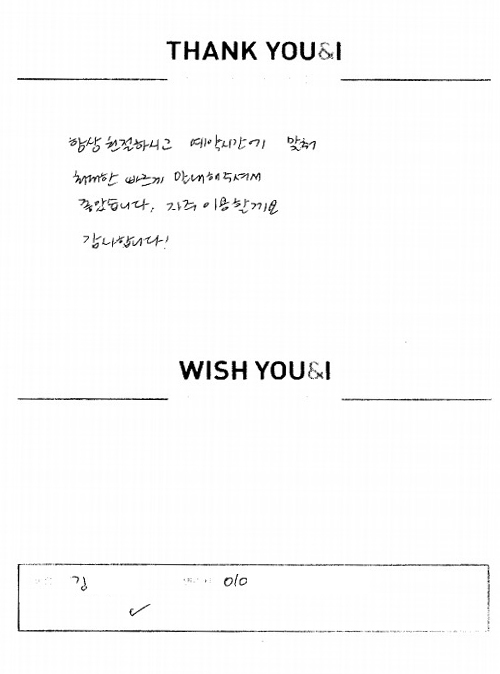 THANK YOU&I
항상 친절하시고 예약시간에 맞춰
최대한 빠르게 안내해주셔서
좋았습니다. 자주 이용할게요
감사합니다!
WISH YOU&I
김 010